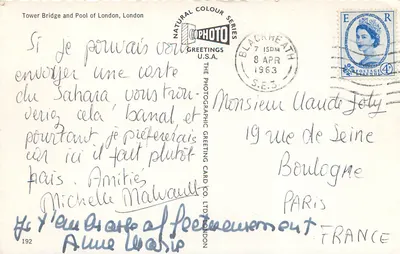 Tower Bridge and Pool of London, London
NATURAL COLOUR SERIES
PHOTO
GREETINGS
U.S.A.
THE PHOTOGRAPHIC GREETING CARD CO. LTD. LONDON
BLACKHEATH
7 15PM
8 APR
1963
S.E.3
E R
Si je pouvais vous
envoyer une carte
du Sahara vous trou-
veriez cela banal et
pourtant je préférerais
car ici il fait plutôt
frais. Amitiés
Michelle
Je t'embrasse affectueusement
Anne Marie
192
Monsieur Claude Joly
19 rue de Seine
Boulogne
PARIS
FRANCE